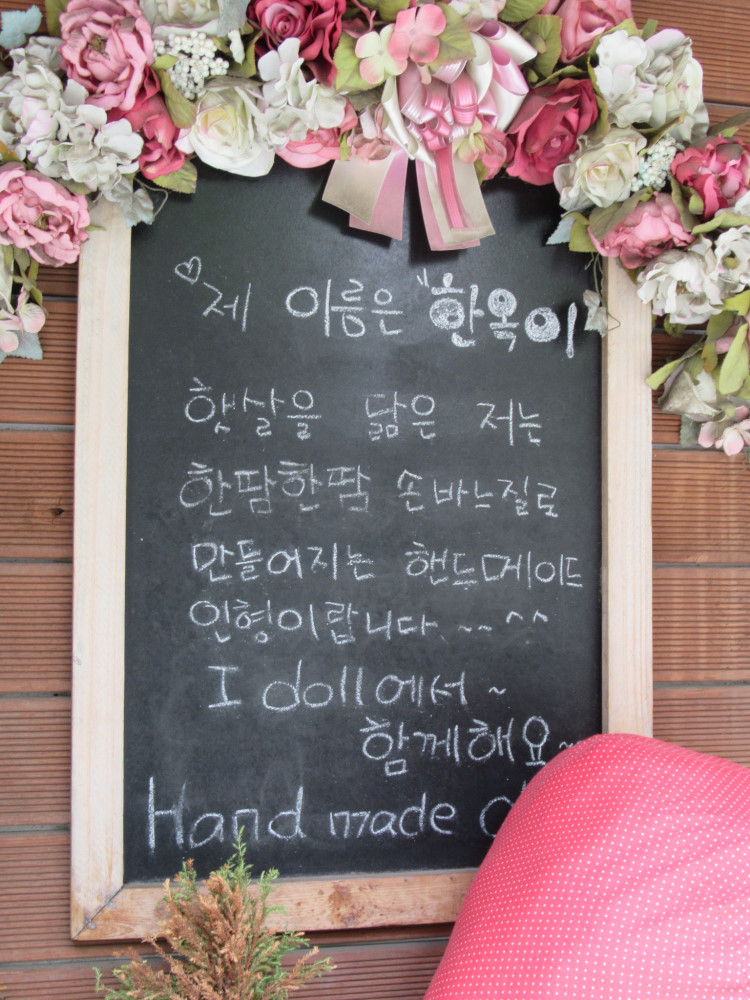 ♡제 이름은 "한옥이
햇살을 닮은 저는
한땀한땀 손바느질로
만들어지는 핸드메이드
인형이랍니다. ~~ ^^
I doll에서 ~
함께해요~
Hand made